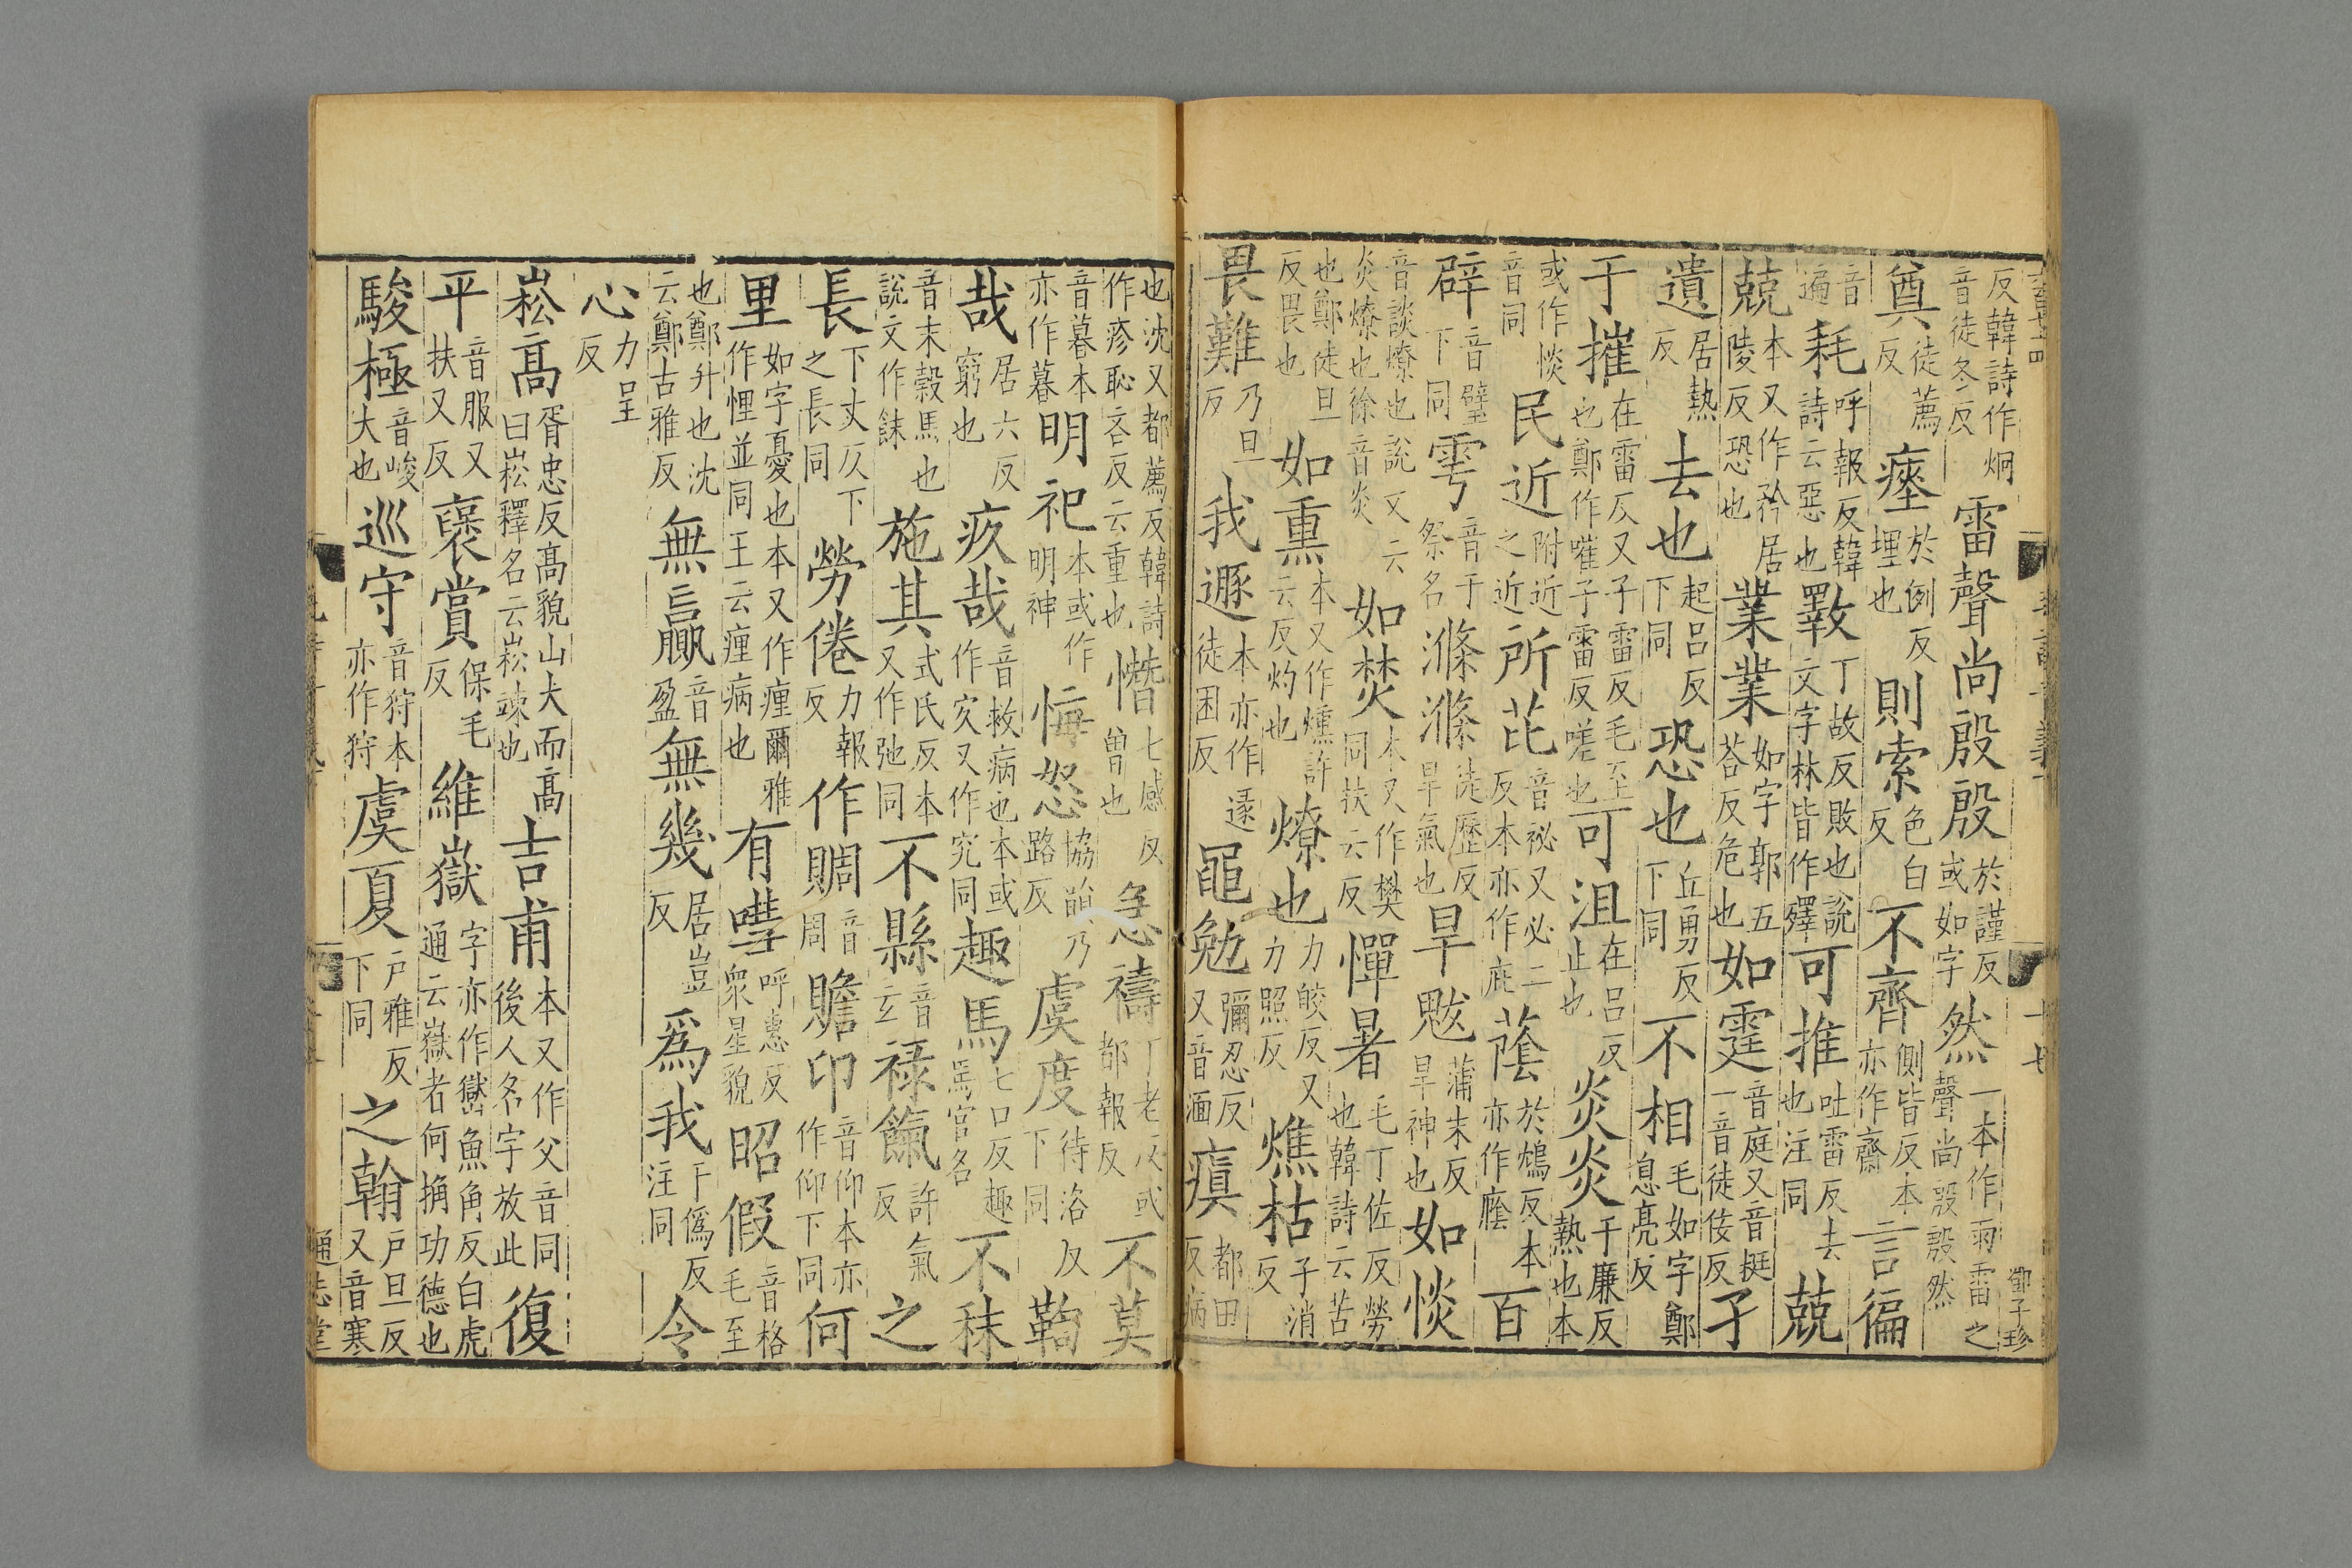 反韓詩作炯音徒冬反雷聲尚殷殷於謹反或如字然一本作雨雷之聲尚殷殷然
奠徒薦反瘞於例反埋也則索色白反不齊側皆反本亦作齋言徧
音遍耗呼報反韓詩云惡也斁丁故反敗也說文字林皆作殬可推吐雷反去也注同兢
兢本又作矜居陵反恐也業業如字郭五荅反危也如霆音庭又音挺一音徒佞反孑
遺居熱反去也起呂反下同恐也丘勇反下同不相毛如字鄭息亮反
于摧在雷反又子雷反毛至也鄭作嗺子雷反嗟也可沮在呂反止也炎炎于廉反熱也本
或作惔音同民近附近之近所芘音祕又必二反本亦作庇蔭於鴆反本亦作廕百
辟音璧下同雩音于祭名滌滌徒歷反旱氣也旱魃蒲末反旱神也如惔
音談燎也說文云炎燎也徐音炎如焚本又作樊同扶云反憚暑毛丁佐反勞也韓詩云苦
也鄭徒旦反畏也如熏本又作燻許云反灼也燎也力皎反又力照反燋枯子消反
畏難乃旦反我遯本亦作遂徒困反黽勉彌忍反又音湎瘨都田反病
鄧子珍
也沈又都薦反韓詩作疹恥吝反云重也憯七感反曾也急禱丁老反或都報反不莫
音暮本亦作暮明祀本或作明神悔怒協韻乃路反虞度待洛反下同鞫
哉居六反窮也疚哉音救病也本或作㝌又作究同趣馬七口反趣馬官名不秣
音末穀馬也說文作䬴施其式氏反本又作弛同不縣音玄祿餼許氣反之
長下丈反下之長同勞倦力報反作賙音周贍卬音仰本亦作仰下同何
里如字憂也本又作瘇爾雅作悝並同王云瘇病也有嘒呼惠反衆星貌昭假音格毛至
也鄭升也沈云鄭古雅反無贏音盈無幾居豈反爲我于僞反注同令
心力呈反
崧高胥忠反高貌山大而高曰崧釋名云崧竦也吉甫本又作父音同後人名字放此復
平音服又扶又反襃賞保毛反維嶽字亦作嶽魚角反白虎通云嶽者何捔功德也
駿極音峻大也巡守音狩本亦作狩虞夏戶雅反下同之翰戶旦反又音寒
通志堂